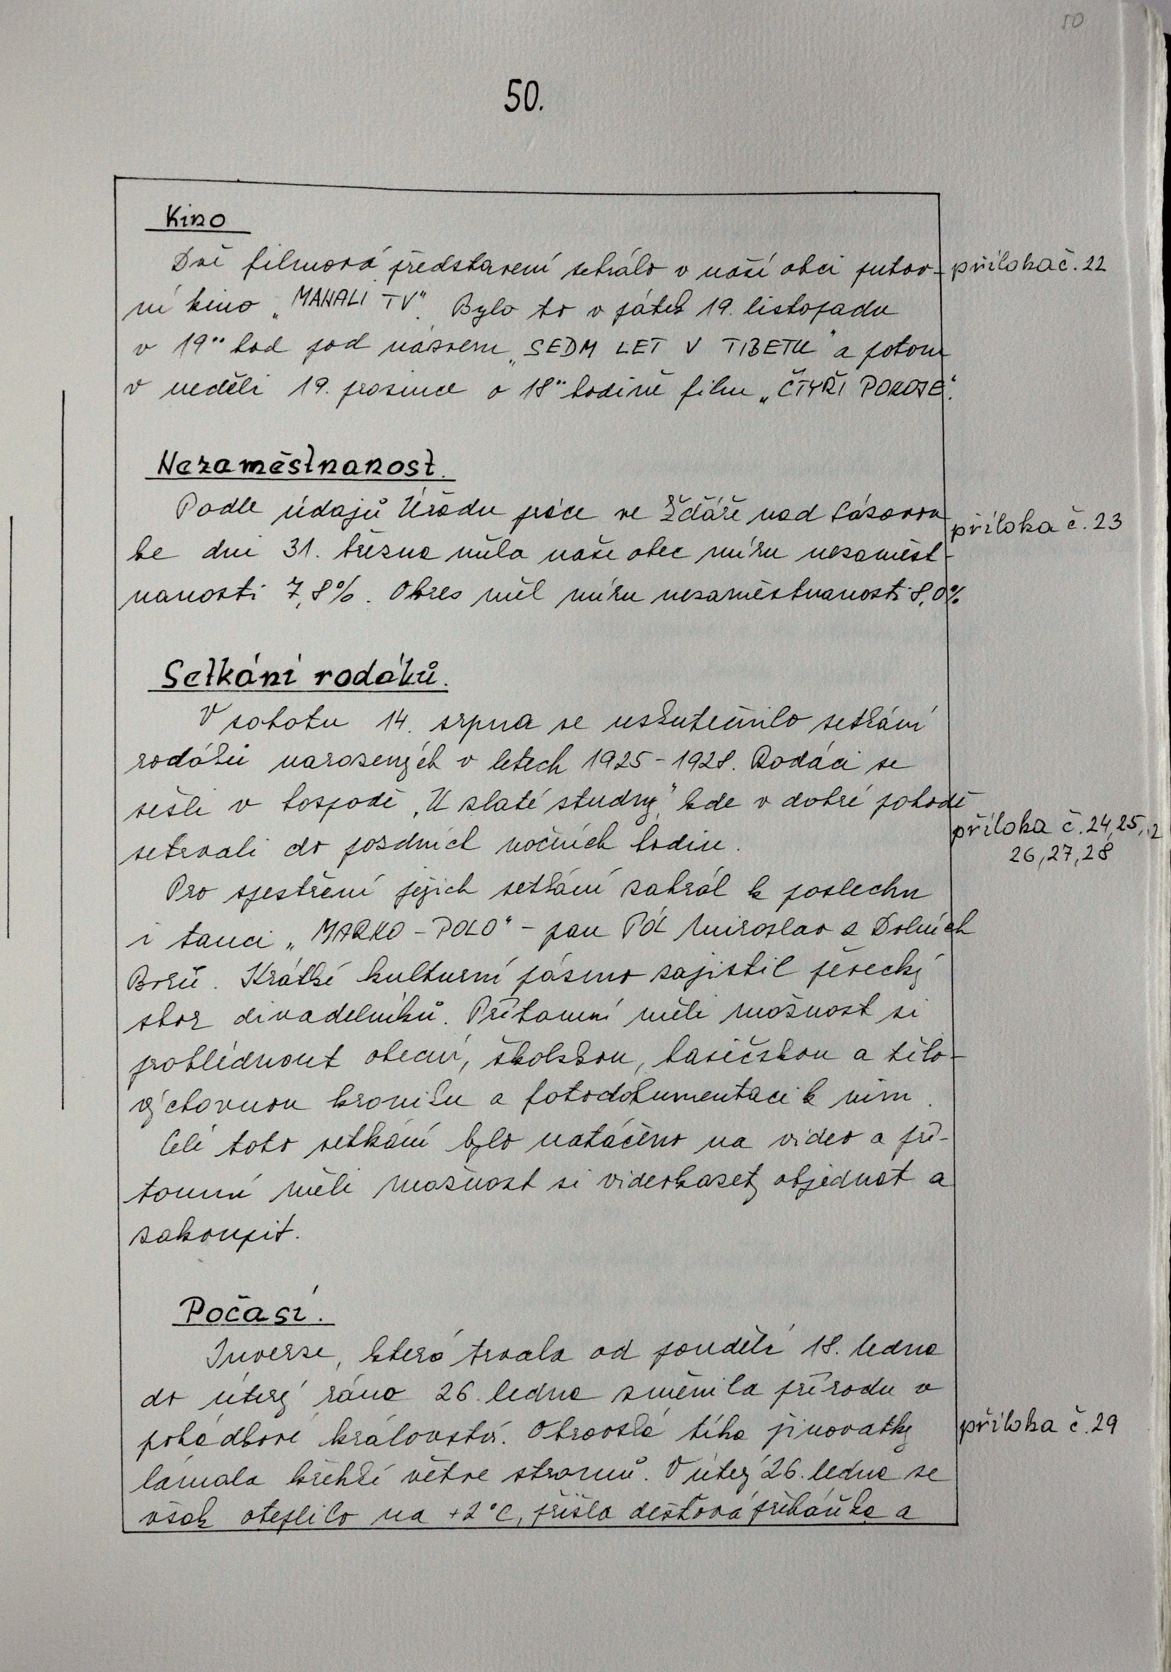 50
50.
Kino
Dvě filmová představení sehrálo v naší obci putov- příloha č. 22
ní kino „MAHALI TV". Bylo to v pátek 19. listopadu
v 19°° hod pod názvem „SEDM LET V TIBETU" a potom
v neděli 19. prosince o 18°° hodině film „ČTYŘI POKOJE".
Nezaměstnanost.
Podle údajů Úřadu práce ve Žďáře nad Sázavou příloha č. 23
ke dni 31. března měla naše obec míru nezaměst-
nanosti 7,8%. Okres měl míru nezaměstnanosti 8,0%
Setkání rodáků.
V sobotu 14. srpna se uskutečnilo setkání
rodáků narozených v letech 1925-1928. Rodáci se
sešli v hospodě „U zlaté studny", kde v dobré pohodě
setrvali do pozdních nočních hodin. příloha č. 24, 25,
26, 27, 28
Pro zpestření jejich setkání zahrál k poslechu
i tanci „MARKO-POLO" - pan Pól Miroslav z Dolních
Borů. Krátké kulturní pásmo zajistil pěvecký
sbor divadelníků. Přítomní měli možnost si
prohlédnout obecní, školskou, hasičskou a tělo-
výchovnou kroniku a fotodokumentaci k nim.
Celé toto setkání bylo natáčeno na video a pří-
tomní měli možnost si videokazety objednat a
zakoupit.
Počasí.
Inverze, která trvala od pondělí 18. ledna
do úterý ráno 26. ledna změnila přírodu v
pohádkové království. Obrovská tíha jinovatky příloha č. 29
lámala křehké větve stromů. V úterý 26. ledna se
však oteplilo na +2°C, přišla dešťová přeháňka a